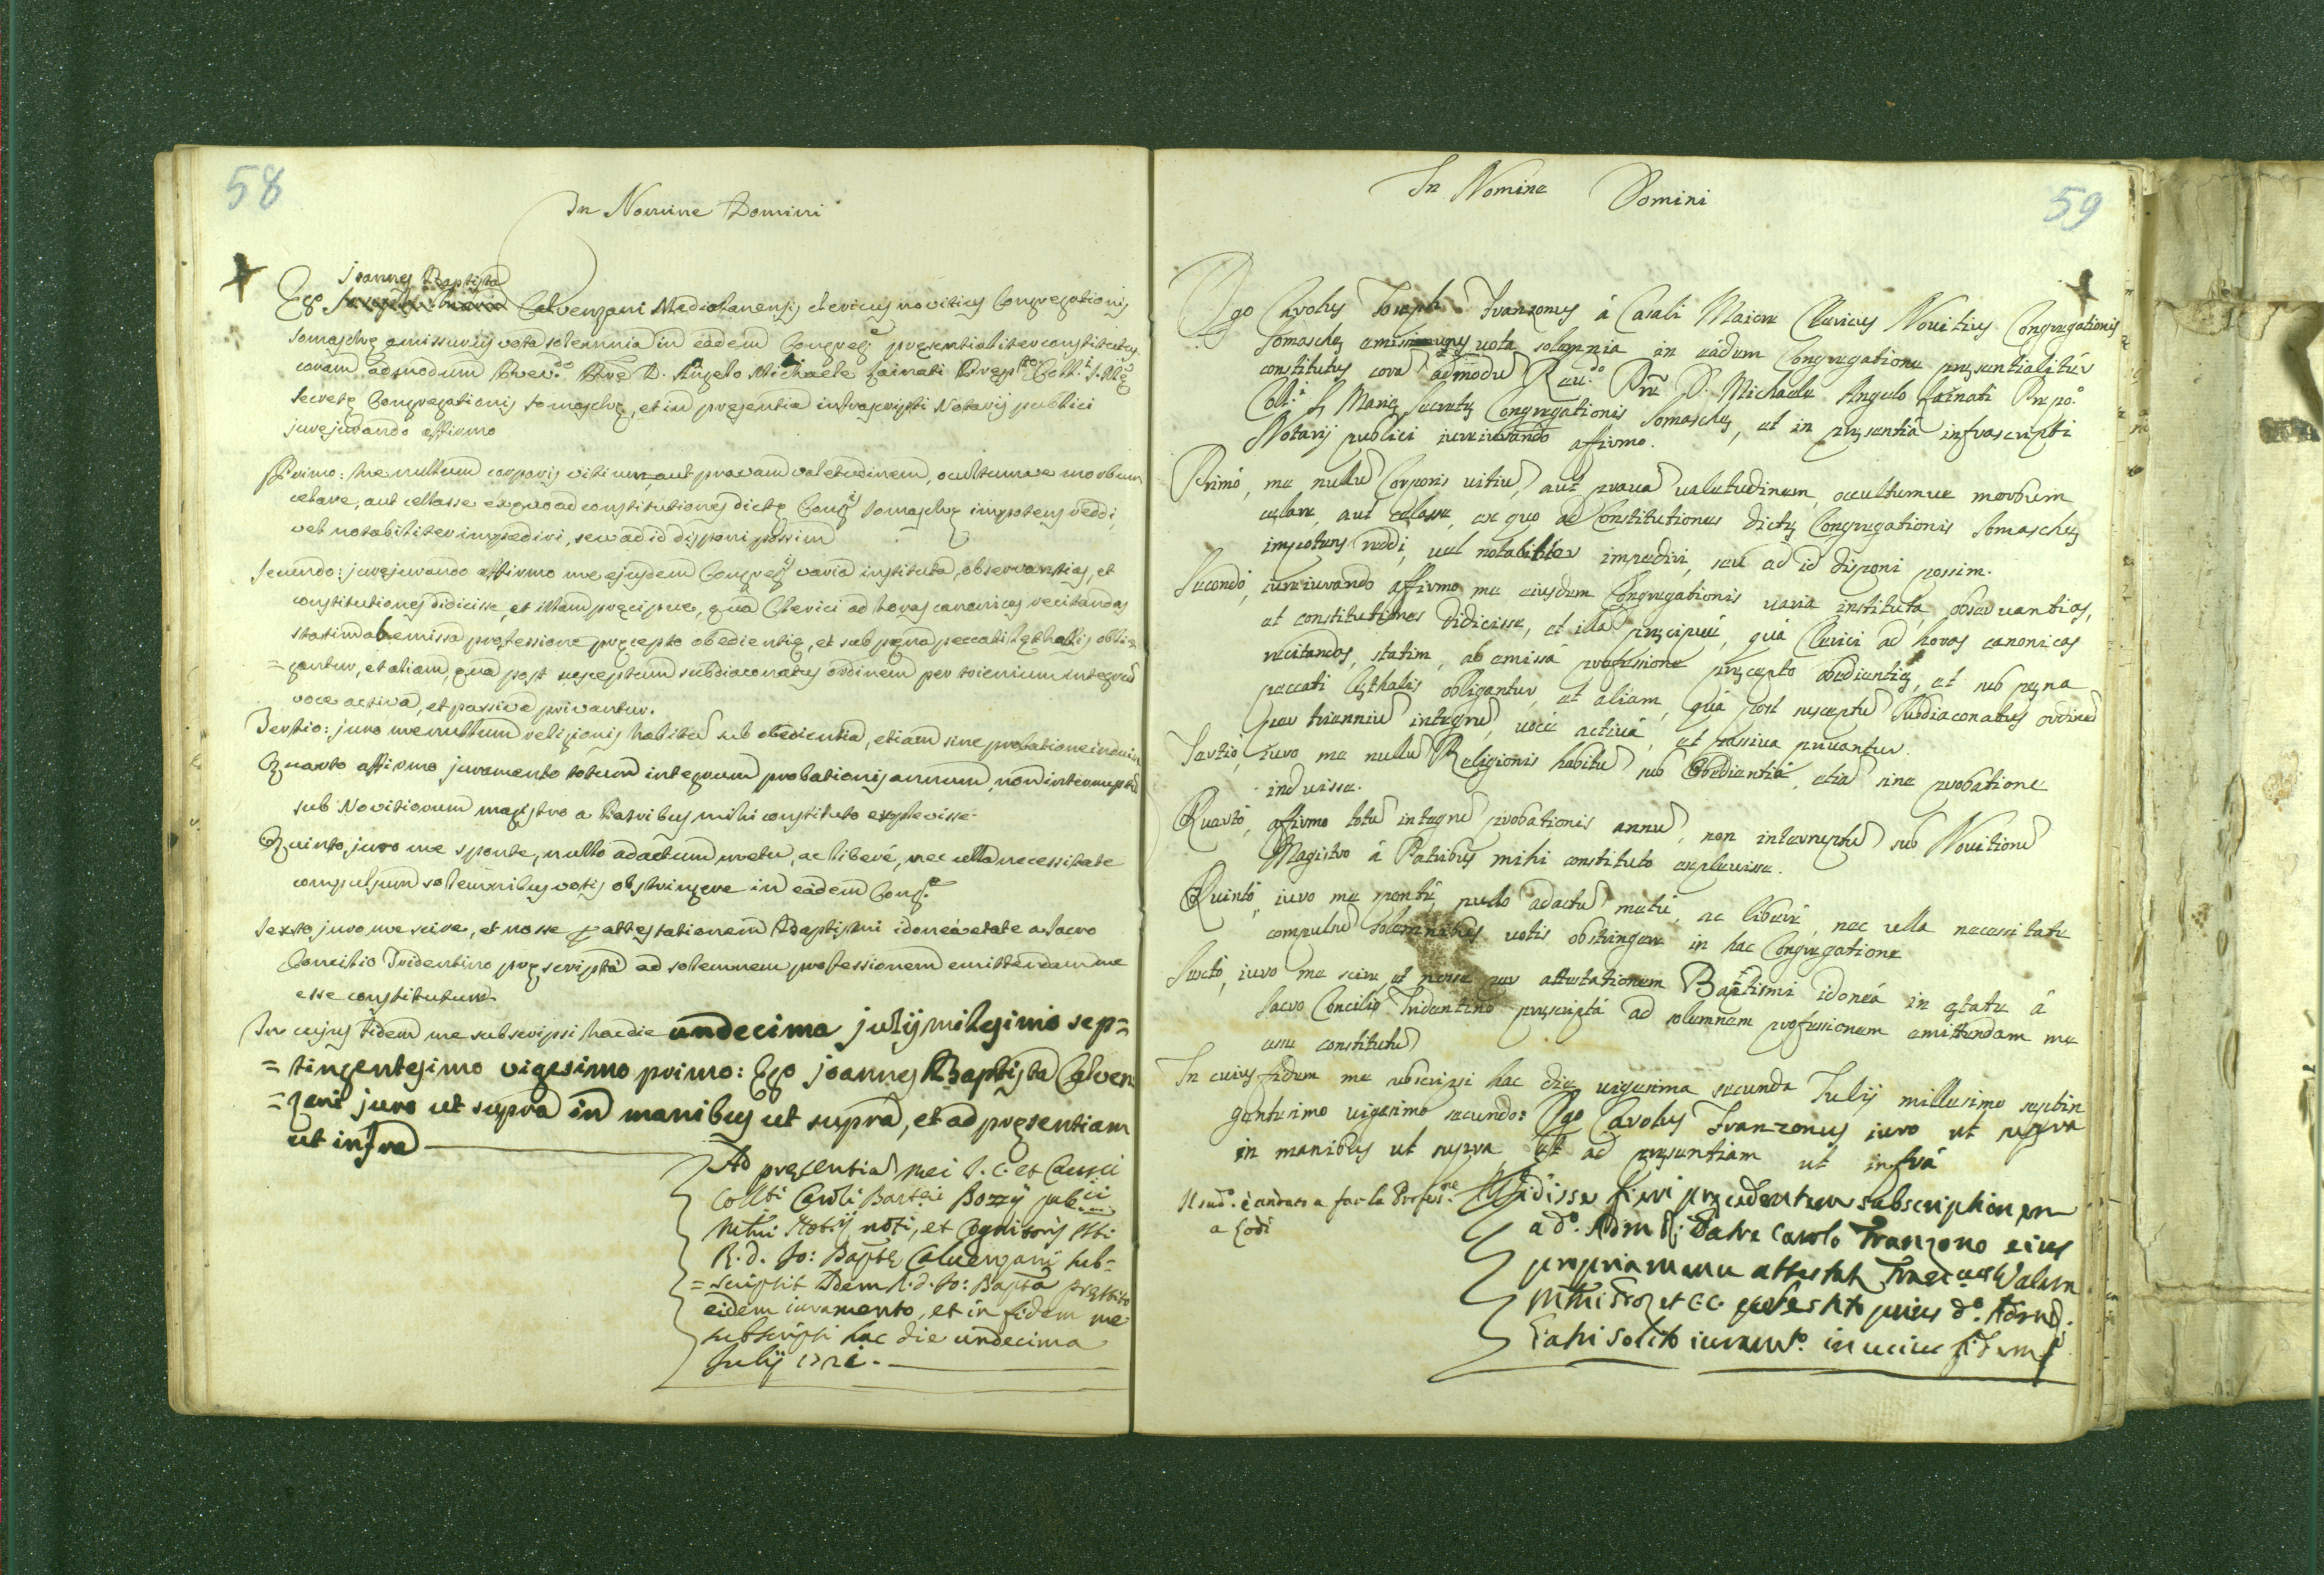 58
In Nomine Domini
Joannes Baptista
Ego Calvenzani Mediolanensis clericus novitius Congregationis
Somaschę emissurus vota solemnia in eadem Congreg.e pręsentialiter constitutus
coram admodum Rev.do Pre D. Angelo Michaele Gainati Pręp.to Coll.i S. Mę
Secretę Congregationis Somaschę, et in pręsentia infrascripti Notarij publici
jurejurando affirmo
Primo: me nullum corporis vitium, aut pravam valetudinem, ocultumve morbum
celare, aut cellasse ex quo ad constitutiones dictę Cong.is Somaschę impotens reddi,
vel notabiliter impediri, seu ad id disponi possim
Secundo: jurejurando affirmo me ejusdem Congreg.is varia instituta, observantias, et
constitutiones didicisse, et illam pręcipue, qua Clerici ad horas canonicas recitandas
statim ab emissa professione pręcepto obedientię, et sub pęna peccati lęthalis obli=
=gantur, et aliam, qua post susceptum subdiaconatus ordinem per trienium integrum
voce activa, et passiva privantur.
Tertio: juro me nullum religionis habitum sub obedientia, etiam sine probatione induisse
Quarto affirmo juramento totum integrum probationis annum, non interruptum
sub Novitiorum magistro a Patribus mihi constituto explevisse.
Quinto, juro me sponte, nullo adactum metu, ac liberé, nec ulla necessitate
compulsum solemnibus votis obstringere in eadem Cong.e
Sexto juro me scire, et nosse p attestationem Baptismi idonea etate a Sacro
Concilio Tridentino pręscripta ad solemnem professionem emittendam me
esse constitutum
In cujus fidem me subscripsi hac die undecima julij milesimo sep=
=tingentesimo vigesimo primo: Ego joannes Baptista Calven
=zani juro ut supra in manibus ut supra, et ad pręsentiam
ut infra
Ad pręsentia mei J. C. et Causci
Colleti Caroli Bartei Bozzij pub.ci
Mtni Notij noti, et Cognitoris
R. d. Jo: Baptę Calvenzani sub=
=scripsit Idem R. d. Jo: Bapta pręstito
eidem iuramento, et in fidem me
subscripsi hac die undecima
Julij 1721.
59
In Nomine Domini
Ego Carolus Joseph Franzonus á Casali Maiore Clericus Novitius Congregationis
Somaschę emissurus vota solemnia in eádem Congregatione pręsentialitér
constitutus corã admodũ Reu.do Pre D. Michaele Angelo Gainati Prępo.
Coll.i S. Marię Secretę Congregationis Somaschę, et in pręsentiá infrascripti
Notarij publici iureiurando affirmo.
Primó, me nullũ Corporis uitiũ, aut prauã ualetudinem, occultumue morbum
cęlare, aut celasse, ex quo ad Constitutiones dictę Congregationis Somaschę
impotens reddi, uel notabiliter impediri, seu ad id disponi possim.
Secondó, iureiurando affirmo me eiusdem Congregationis uaria instituta, obseruantias,
et constitutiones didicisse, et illã pręcipué, quá Clerici ad horas canonicas
recitandas, statim, ab emissá professione pręcepto obedientię, et sub pęna
peccati lęthalis obligantur, et aliam, quá post susceptũ Subdiaconatus ordinẽ
per trienniũ integrũ, uocé actiuá, et passiua priuantur.
Tertió, iuro me nullũ Religionis habitũ sub Obedientiá, etiã sine probatione
induisse.
Quartó, affirmo totũ integrũ probationis annũ, non interruptũ sub Nouitiorũ
Magistro á Patribus mihi constituto expleuisse.
Quintó, iuro me sponté, nullo adactũ metú, ac liberé, nec ulla necessitate
compulsũ solemnibus uotis obstringere in hac Congregatione
Sextó, iuro me scire, et nosse per attestationem Baptismi idoneá in ętate á
Sacro Concilio Tridentino pręscriptá ad solemnem professionem emittendam me
esse constitutũ
In cuius fidem me subscripsi hac die uigesima secunda Julij millesimo septin
gentesimo uigesimo secundo: Ego Carolus Franzonus iuro ut supra
in manibus ut supra et ad pręsentiam ut infrá
Il sud.o è andato a far la Profess.ne
a Lodi
Vidisse fieri pręcedentem subscriptionem
a d.o Adm R. Patre Carolo Franzono eius
propria manu attestat Franc.us
et C.C. pręstito prius d.o Adm R.
Patri solito iuram.to in cuius fidem